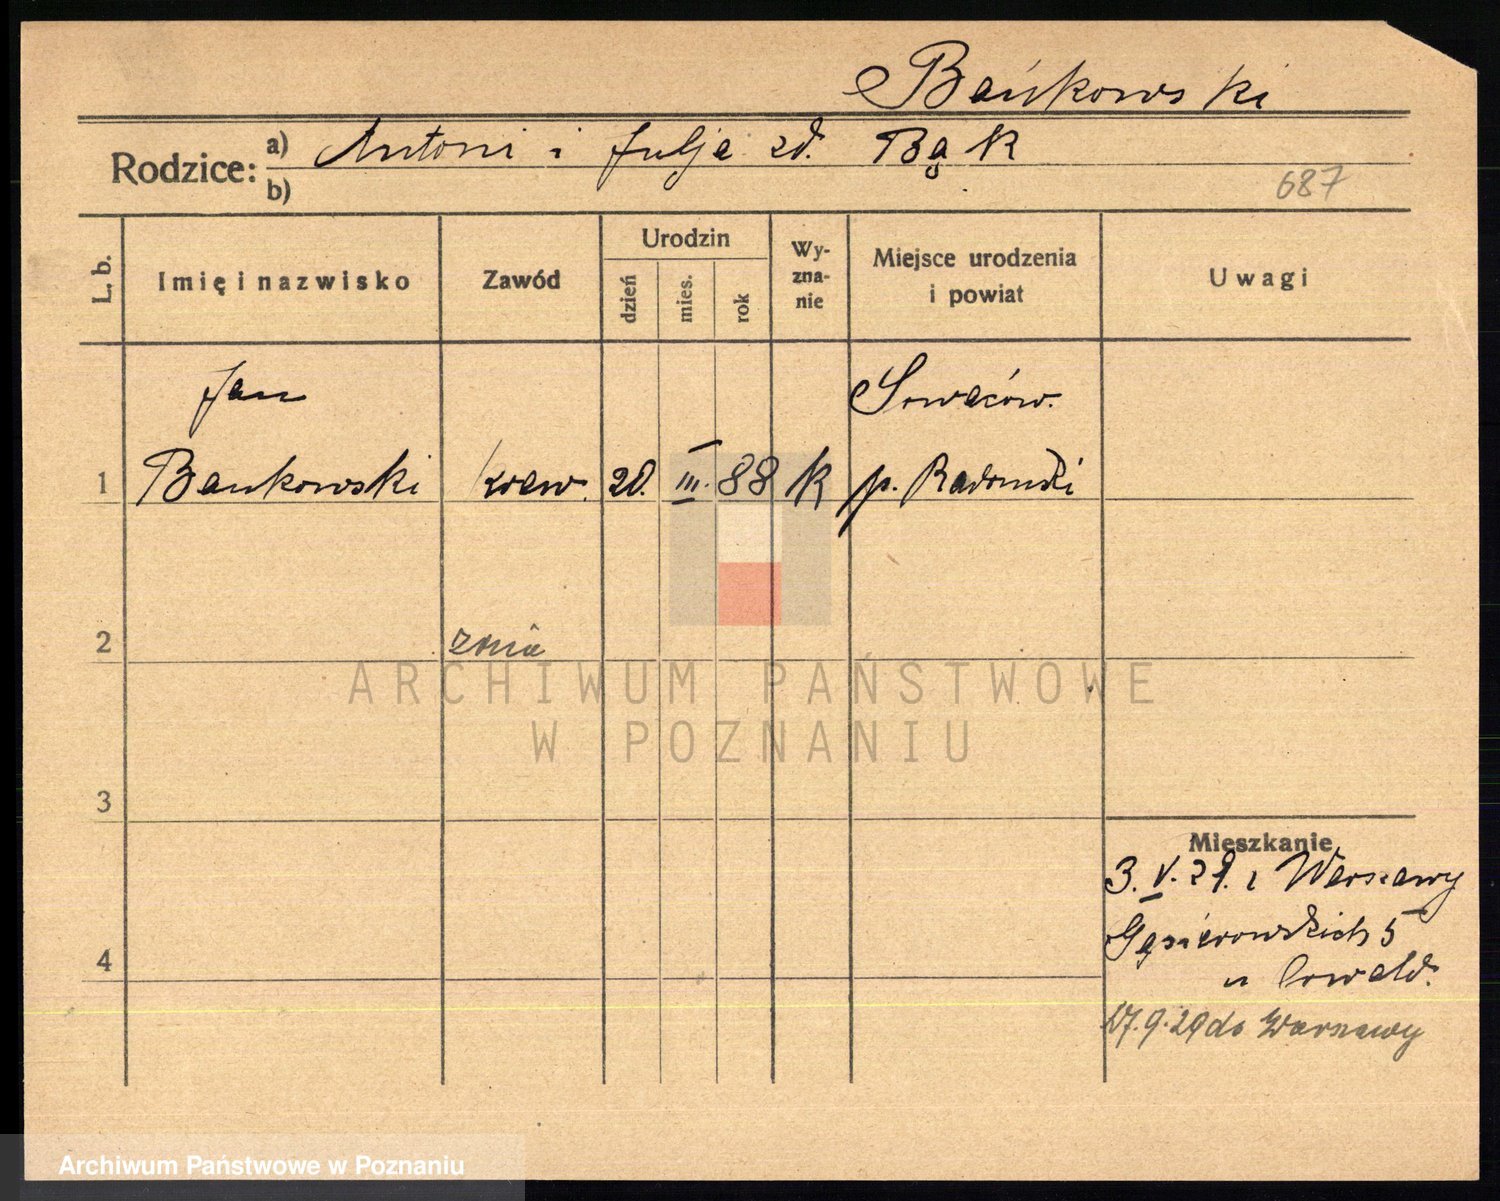 Bańkowski
Rodzice: a) Antoni i Julja zd. Bąk
b)
687
L. b.
Imię i nazwisko
Zawód
Urodzin
dzień
mies.
rok
Wy-
zna-
nie
Miejsce urodzenia
i powiat
Uwagi
Jan
1 Bankowski kraw. 20. III. 88 k p. Radomski
2 znia
3
Mieszkanie
3. V. 29. z Warszawy
Gąsierowskich 5
4
u
17.9.29 do Warszawy
ARCHIWUM PAŃSTWOWE
W POZNANIU
Archiwum Państwowe w Poznaniu